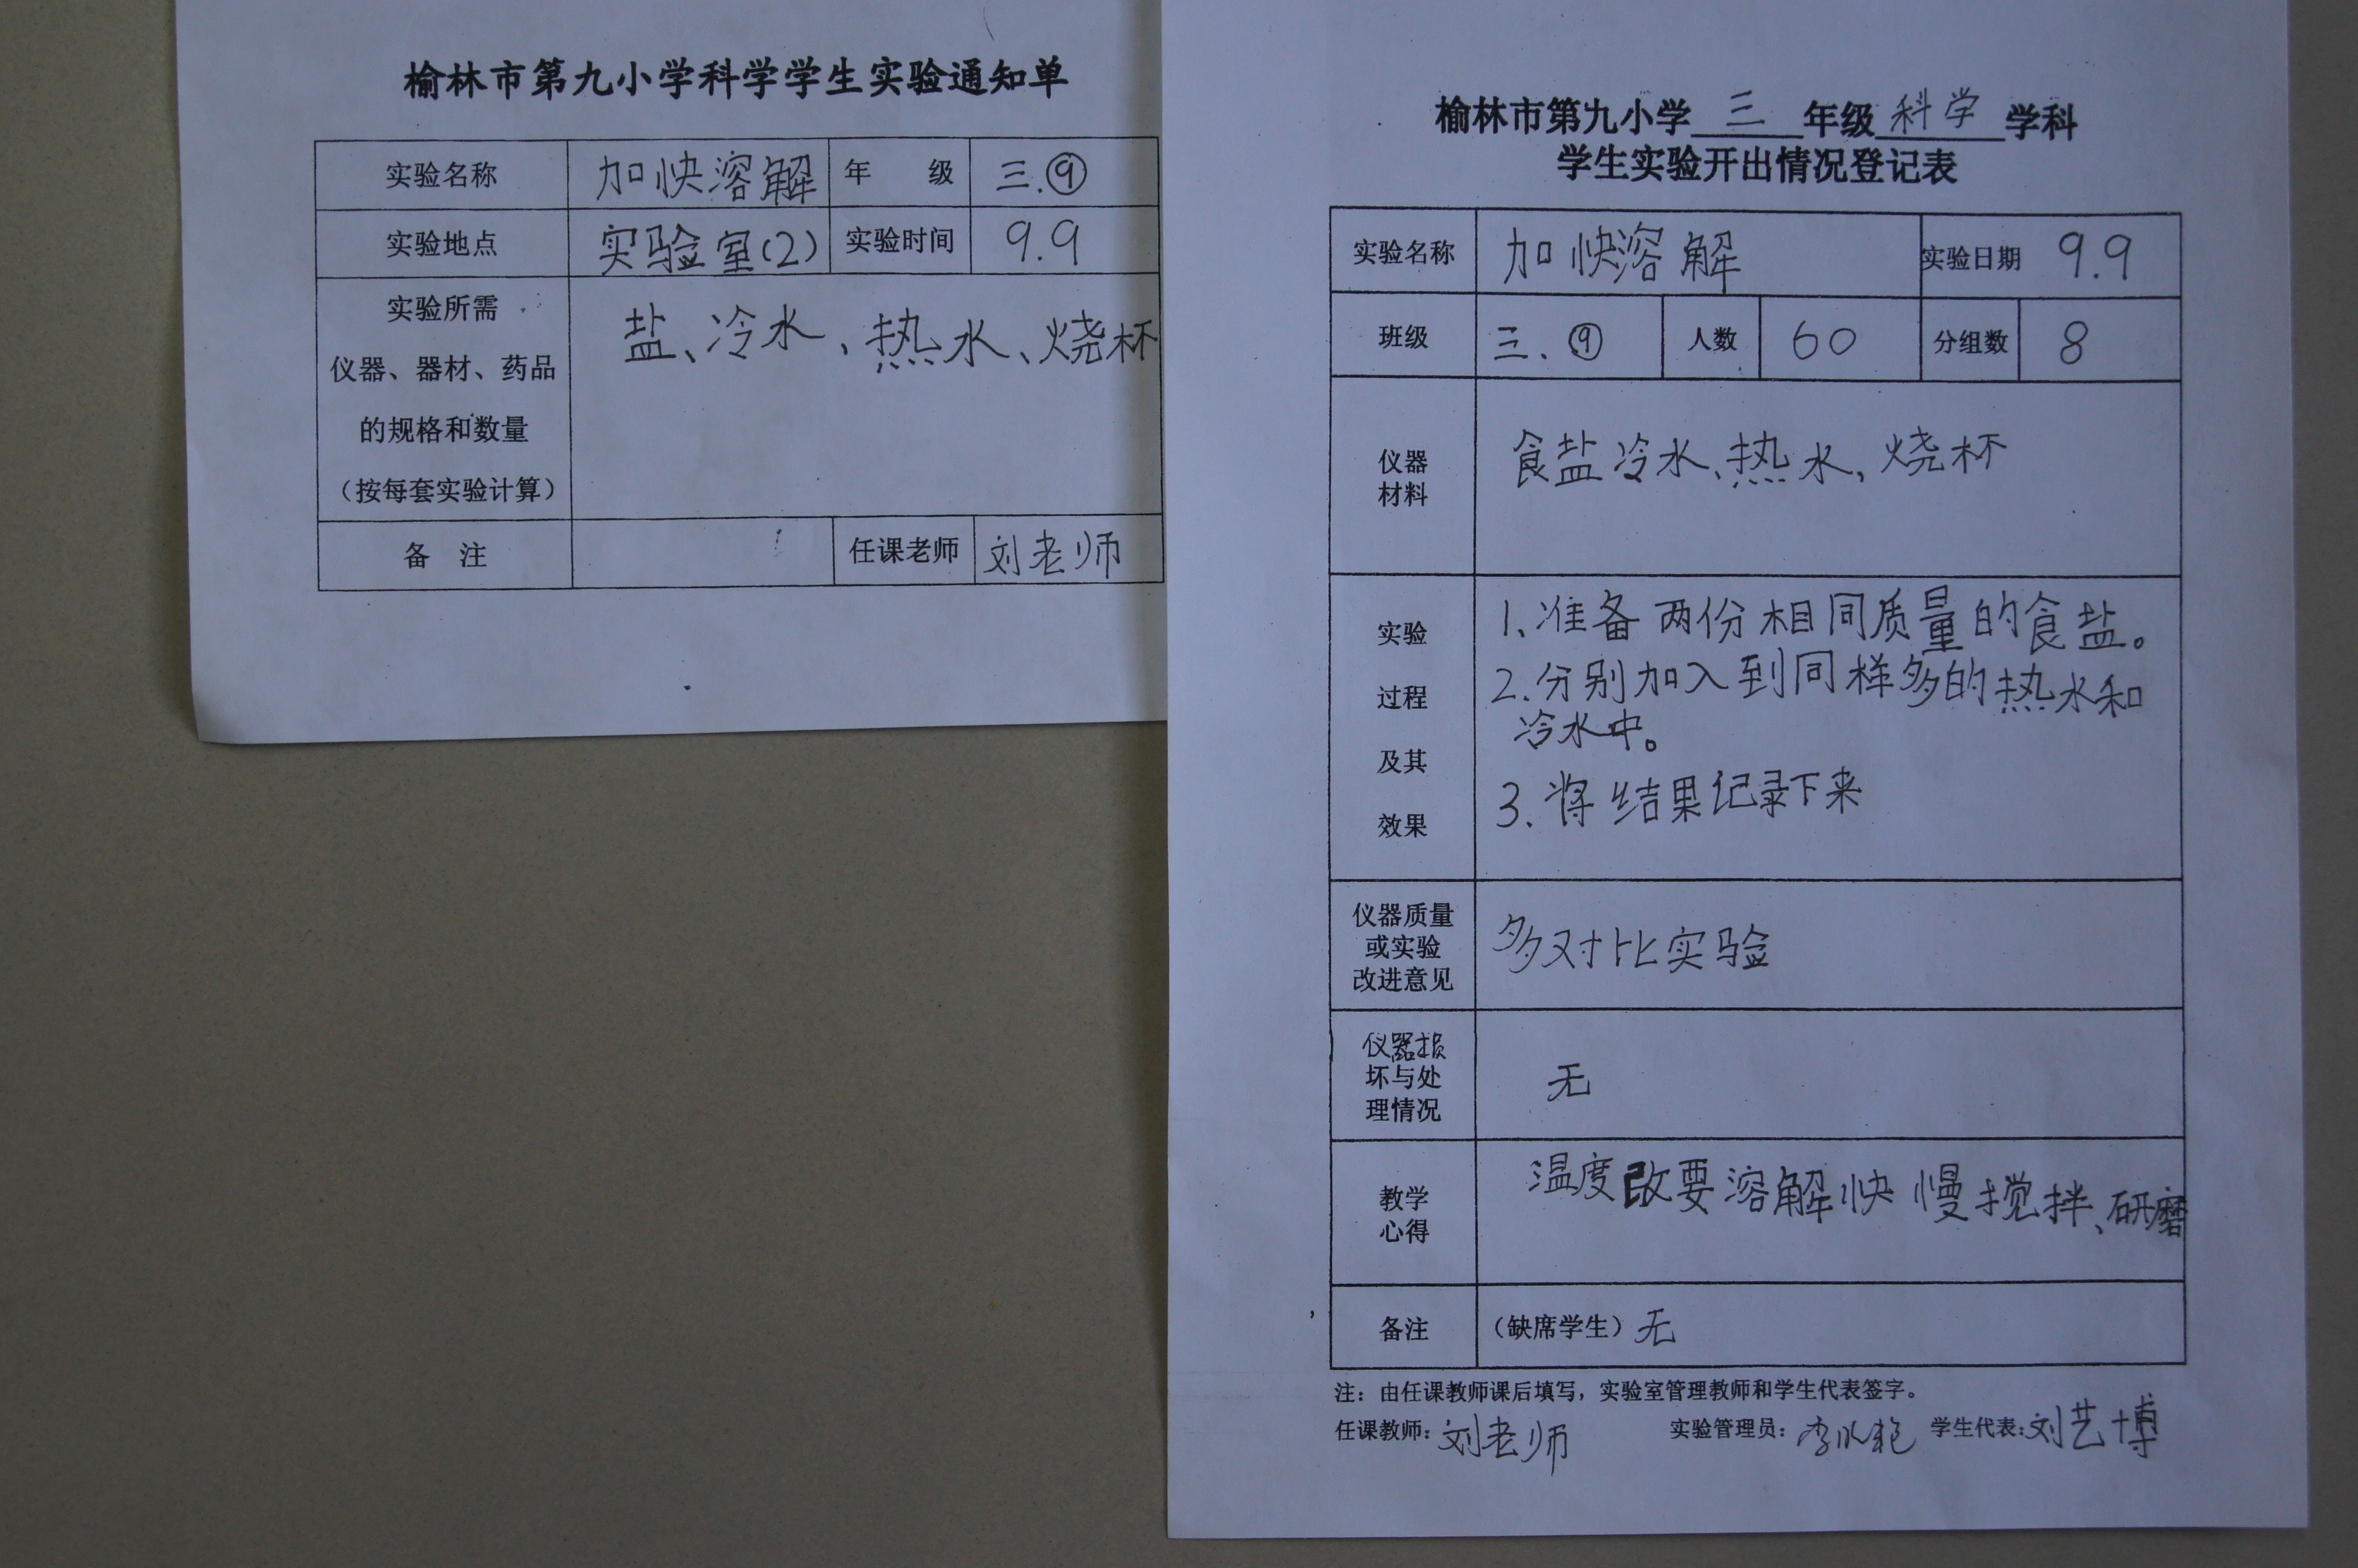 榆林市第九小学科学学生实验通知单
实验名称 加快溶解 年 级 三.⑨
实验地点 实验室(2) 实验时间 9.9
实验所需
仪器、器材、药品
的规格和数量
（按每套实验计算）
盐、冷水、热水、烧杯
备 注 任课老师 刘老师
榆林市第九小学 三 年级 科学 学科
学生实验开出情况登记表
实验名称 加快溶解 实验日期 9.9
班级 三.⑨ 人数 60 分组数 8
仪器
材料
食盐冷水、热水、烧杯
实验
过程
及其
效果
1、准备两份相同质量的食盐。
2.分别加入到同样多的热水和
冷水中。
3.将结果记录下来
仪器质量
或实验
改进意见
多对比实验
仪器损
坏与处
理情况
无
教学
心得
温度改要溶解快慢搅拌、研磨
备注 （缺席学生）无
注：由任课教师课后填写，实验室管理教师和学生代表签字。
任课教师：刘老师 实验管理员： 学生代表：刘艺博